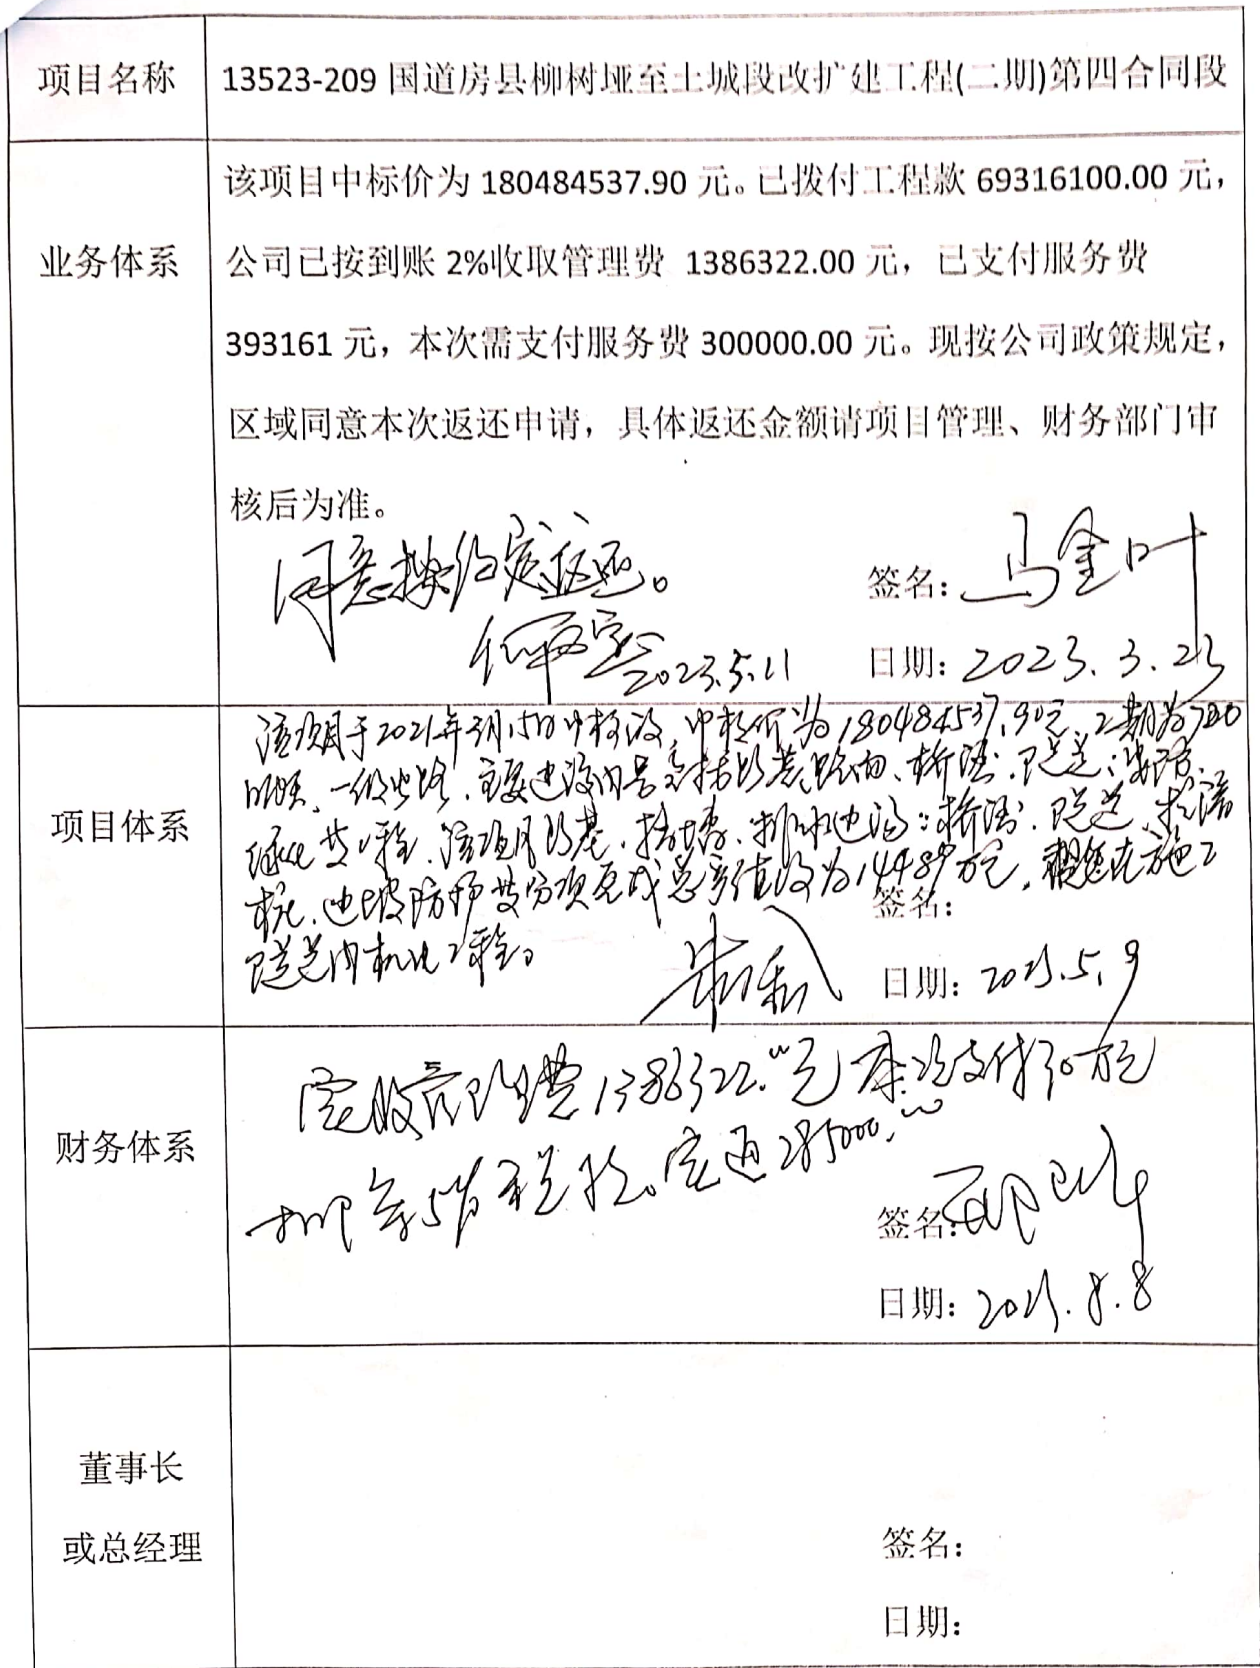 项目名称
13523-209 国道房县柳树垭至土城段改扩建工程(二期)第四合同段
业务体系
该项目中标价为 180484537.90 元。已拨付工程款 69316100.00 元，
公司已按到账 2%收取管理费 1386322.00 元，已支付服务费
393161 元，本次需支付服务费 300000.00 元。现按公司政策规定，
区域同意本次返还申请，具体返还金额请项目管理、财务部门审
核后为准。
同意按约定返还。
2023.5.11
签名：马金叶
日期：2023.3.23
项目体系
该项目于2021年3月15日中标的，中标价为180484537.90元，工期为720
日历天，一级公路，主要建设内容包括路基、路面、桥涵、隧道、
绿化等工程，该项目路基、挡墙、排水边沟、桥涵、隧道、
桩、边坡防护等分项完成总产值约为14489万元，现正在施工
隧道内机电工程。
签名：
日期：2023.5.9
财务体系
实收管理费1386322.00元 本次支付30万元
扣 5% 税 实退285000.00
签名：
日期：2023.8.8
董事长
或总经理
签名：
日期：